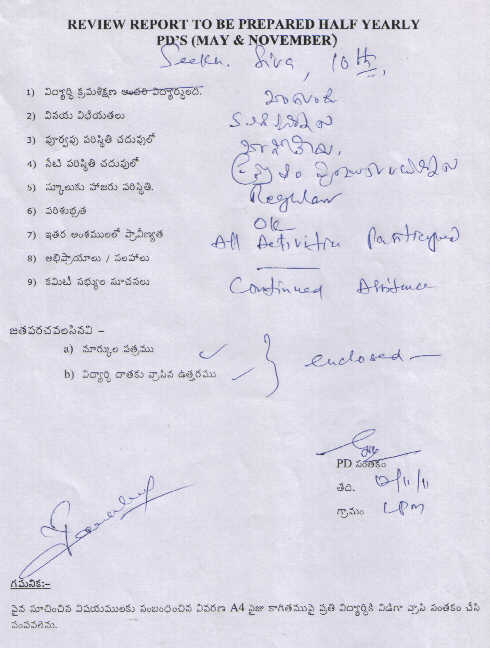 REVIEW REPORT TO BE PREPARED HALF YEARLY
PD'S (MAY & NOVEMBER)
Siva, 10th,
1) విద్యార్థి క్రమశిక్షణ అందరి విద్యార్థులది. బాగుంది
2) వినయ విధేయతలు
3) పూర్వపు పరిస్థితి చదువులో
4) నేటి పరిస్థితి చదువులో
5) స్కూలుకు హాజరు పరిస్థితి. Regular
6) పరిశుభ్రత OK
7) ఇతర అంశములలో ప్రావీణ్యత All Activities Participated
8) అభిప్రాయాలు / సలహాలు
9) కమిటీ సభ్యుల సూచనలు Continued Assistance
జతపరచవలసినవి –
a) మార్కుల పత్రము
b) విద్యార్థి దాతకు వ్రాసిన ఉత్తరము
enclosed
PD సంతకం
తేది. 12/11/11
గ్రామం LPM
గమనిక:–
పైన సూచించిన విషయములకు సంబంధించిన వివరణ A4 సైజు కాగితముపై ప్రతి విద్యార్థికి విడిగా వ్రాసి సంతకం చేసి
పంపవలెను.